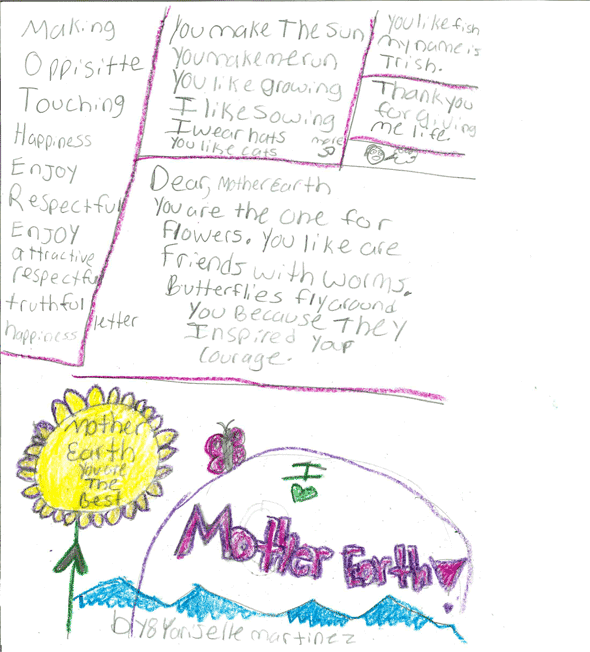 Making
Oppisitte
Touching
Happiness
Enjoy
Respectful
Enjoy
attractive
respectful
truthful
happiness
letter
You make The Sun
You make me run
You like growing
I like sowing
I wear hats
You like cats
more
you like fish
my name is
Trish.
Thank you
for giving
me life
Dear, Mother Earth
You are the one for
flowers. You like are
friends with worms.
Butterflies fly around
you Because They
Inspired your
courage.
Mother
Earth
You are
The
Best
I
Mother Earth
by Yariselle martinez